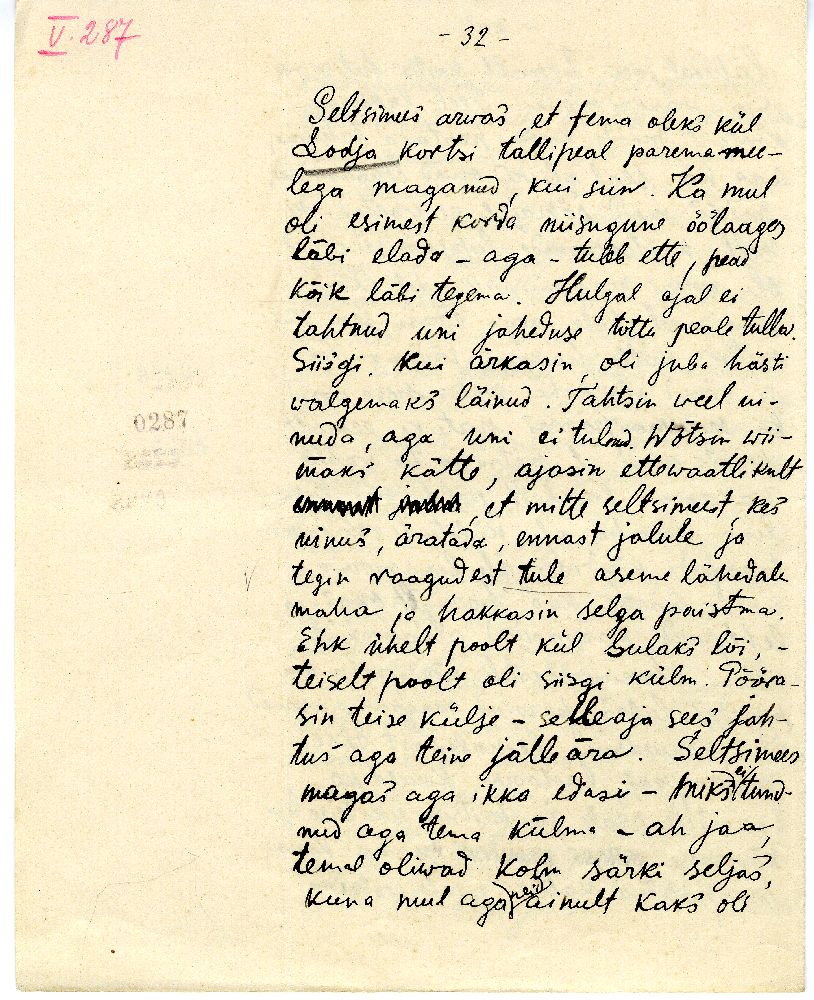 V. 287
- 32 -
Seltsimees arwas, et tema oleks kül
Lodja kortsi tallipeal parema mee-
lega maganud, kui siin. Ka mul
oli esimest korda niisugune öölaager
läbi elada - aga - tuleb ette, pead
kõik läbi tegema. Hulgal ajal ei
tahtnud uni jaheduse tõttu peale tulla.
Siisgi. Kui ärkasin, oli juba hästi
walgemaks läinud. Tahtsin weel ui-
nuda, aga uni ei tulnud. Wõtsin wii-
maks kätte, ajasin ettewaatlikult
, et mitte seltsimeest, kes
uinus, äratada, ennast jalule ja
tegin raagudest tule aseme lähedale
maha ja hakkasin selga paistma.
Ehk ühelt poolt kül sulaks lõi, -
teiselt poolt oli siisgi külm. Pööra-
sin teise külje - selle aja sees jah-
tus aga teine jälle ära. Seltsimees
magas aga ikka edasi - Miks ei tund-
nud aga tema külma - ah jaa,
temal oliwad kolm särki seljas,
kuna mul aga neid ainult kaks oli
0287